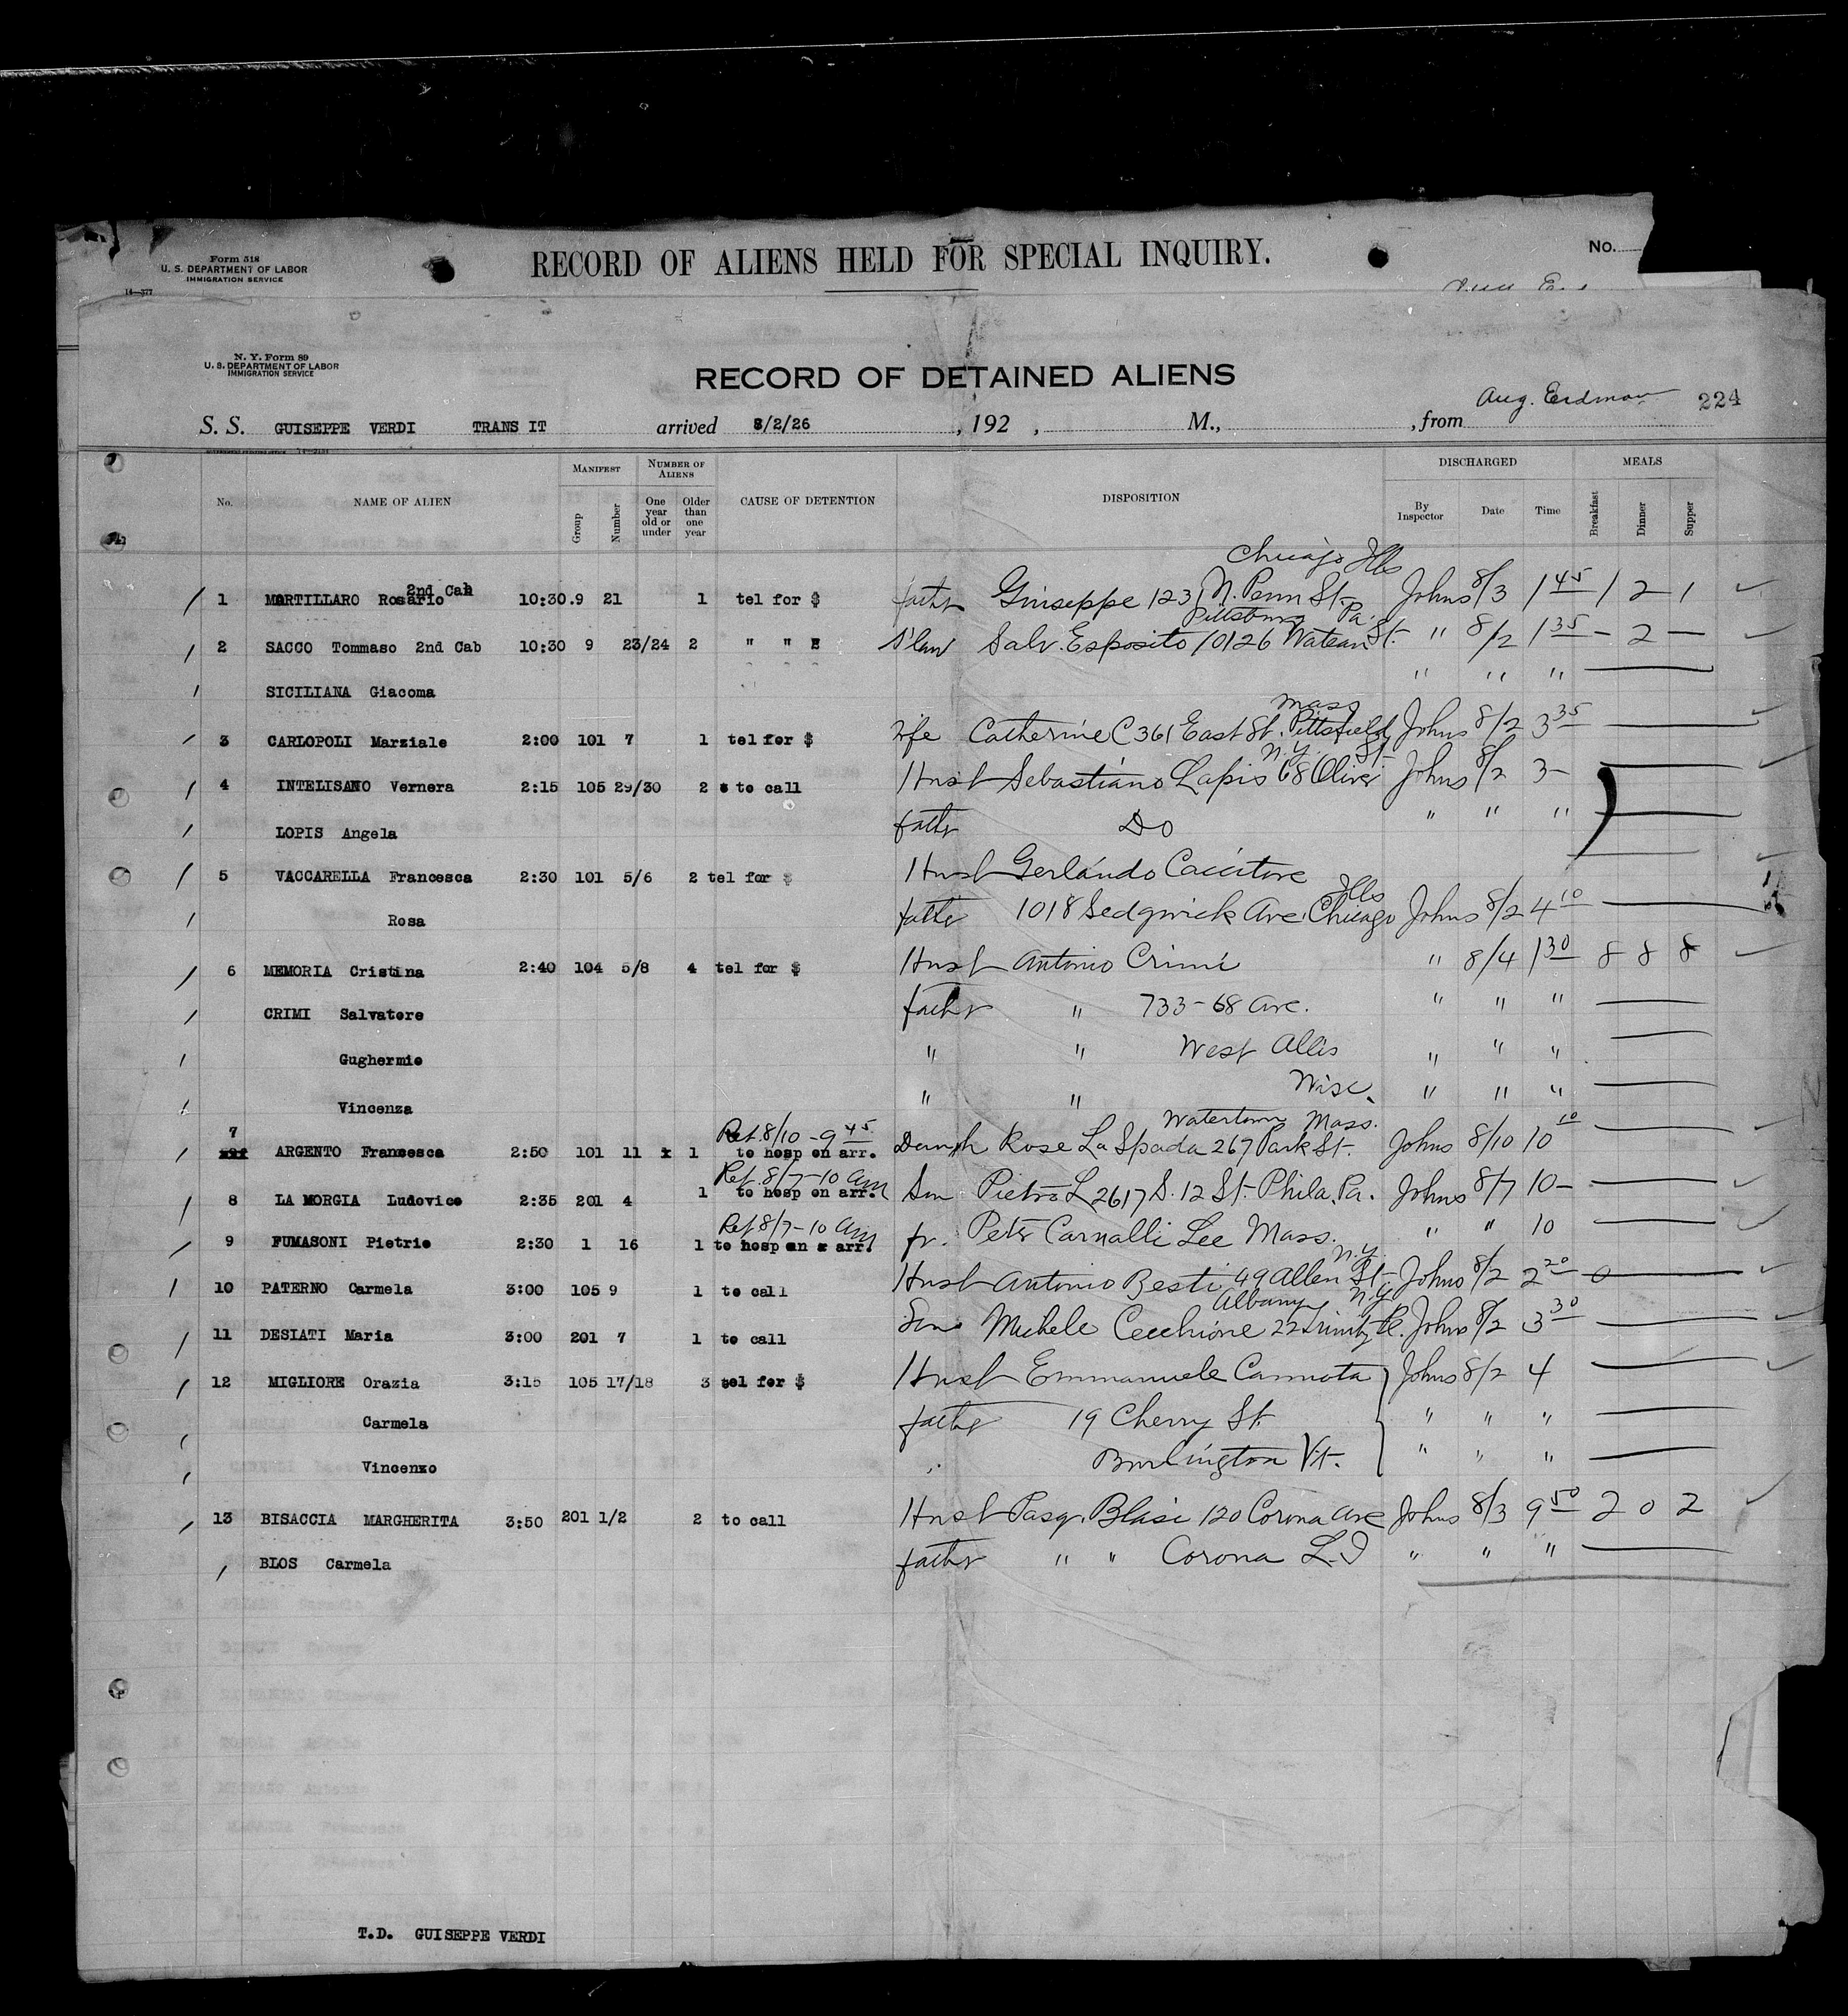 Form 518
U. S. DEPARTMENT OF LABOR
IMMIGRATION SERVICE
14—377
RECORD OF ALIENS HELD FOR SPECIAL INQUIRY.
No.
N. Y. Form 89
U. S. DEPARTMENT OF LABOR
IMMIGRATION SERVICE
RECORD OF DETAINED ALIENS
Aug. Erdman 224
S. S. GUISEPPE VERDI TRANS IT arrived 8/2/26, 192 , M., , from
No. NAME OF ALIEN MANIFEST Group Number NUMBER OF ALIENS One year old or under Older than one year CAUSE OF DETENTION DISPOSITION DISCHARGED By Inspector Date Time MEALS Breakfast Dinner Supper
Chicago Ills
2nd Cab
1 MARTILLARO Rosario 10:30. 9 21 1 tel for $ father Giuseppe 1231 N. Penn St. Johns 8/3 1 45 1 2 1
Pittsburg Pa.
2 SACCO Tommaso 2nd Cab 10:30 9 23/24 2 " " $ s'law Salv. Esposito 10126 St. " 8/2 1 35 – 2 –
SICILIANA Giacoma " " "
Mass
3 CARLOPOLI Marziale 2:00 101 7 1 tel for $ wife Catherine C 361 East St. Pittsfield Johns 8/2 3 35
N.Y. St.
4 INTELISANO Vernera 2:15 105 29/30 2 to call Husb Sebastiano Lapis 68 Oliver Johns 8/2 3–
LOPIS Angela father Do " " "
5 VACCARELLA Francesca 2:30 101 5/6 2 tel for $ Husb Gerlando Cacciatore
Ills
Rosa father 1018 Sedgwick Ave. Chicago Johns 8/2 4 10
6 MEMORIA Cristina 2:40 104 5/8 4 tel for $ Husb Antonio Crimi " 8/4 1 30 8 8 8
CRIMI Salvatore father " 733-68 Ave. " " "
Gughermie " " West Allis " " "
Vincenza " " Wisc. " " "
Ret. 8/10 - 9 45 Watertown Mass.
7 ARGENTO Francesca 2:50 101 11 x 1 to hosp on arr. Daugh Rose La Spada 267 Park St. Johns 8/10 10 10
Ret. 8/7-10 am
8 LA MORGIA Ludovico 2:35 201 4 1 to hosp on arr. Son Pietro L 2617 S. 12 St. Phila. Pa. Johns 8/7 10–
Ret 8/7-10 am
9 FUMASONI Pietrie 2:30 1 16 1 to hosp on x arr. fr. Peter Carnalli Lee Mass. " " 10
N.Y.
10 PATERNO Carmela 3:00 105 9 1 to call Husb Antonio Besti 49 Allen St. Johns 8/2 2 20 0
Albany N.Y.
11 DESIATI Maria 3:00 201 7 1 to call Son Michele Cecchione 22 Trinity Pl. Johns 8/2 3 30
12 MIGLIORE Orazia 3:15 105 17/18 3 tel for $ Husb Emmanuele Cannata Johns 8/2 4
Carmela father 19 Cherry St. " " "
Vincenzo " Burlington Vt. " " "
13 BISACCIA MARGHERITA 3:50 201 1/2 2 to call Husb Pasq. Blasi 120 Corona Ave Johns 8/3 9 50 2 0 2
BLOS Carmela father " " Corona L.I " " "
T.D. GUISEPPE VERDI